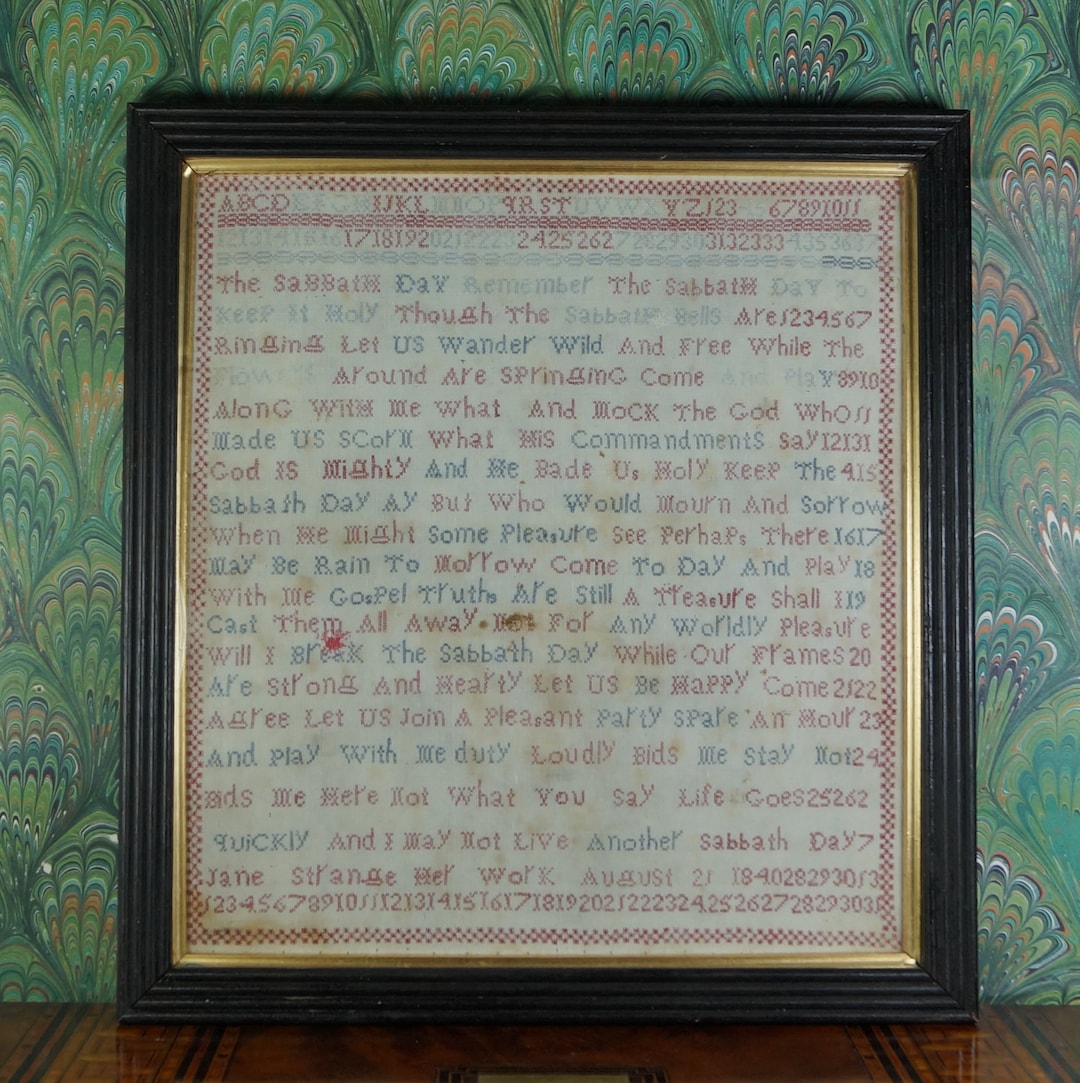 ABCDEFGHIJKLMNOPQRSTUVWXYZ123456789101 1
12131415161617181920212223242526272829303132333435363 7
The SaBBath Day Remember The Sabbath Day To
Keep It Holy Though The Sabbath Bells Are1234567
Ringing Let US Wander Wild And Free While The
Flowers Around Are SPringinG Come And Play8910
AlonG With Me What And Mock The God Who11
Made US Scorn What His CommandmentS Say12131
God IS Mighty And He Bade Us Holy Keep The415
Sabbath Day Ay But Who Would Mourn And Sorrow
When He Might Some Pleasure See Perhaps There1617
May Be Rain To Morrow Come To Day And Play18
With Me Gospel Truths Are Still A Treasure Shall I19
Cast Them All Away Not For Any Worldly Pleasure
Will I Break The Sabbath Day While Our FrameS20
Are Strong And Hearty Let US Be Happy Come2122
Agree Let US Join A Pleasant Party Spare An Hour23
And Play With Me duty Loudly Bids Me Stay Not24
Bids Me Here Not What You Say Life Goes25262
quickly And I May Not Live Another Sabbath Day7
Jane Strange Her Work August 21 1840282930313
12345678910111213141516171819202122232425262728293031